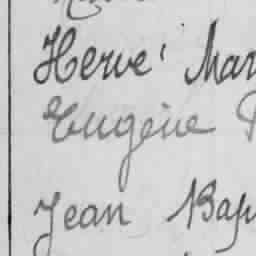 Hervé Mar
Eugène
Jean Bap